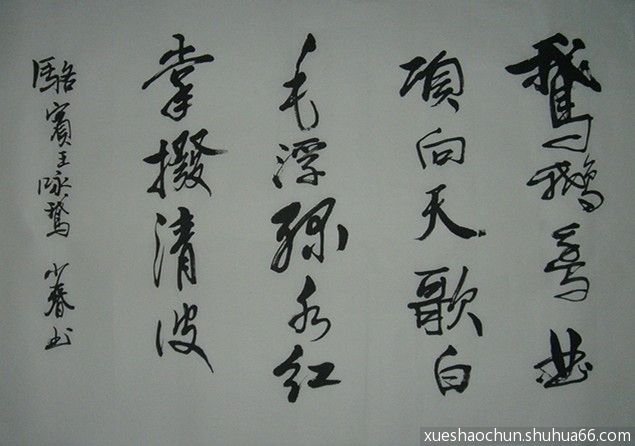 鵞鵝鵞曲
項向天歌白
毛浮綠水紅
掌撥清波
駱賓王咏鵞 少春书
xueshaochun.shuhua66.com